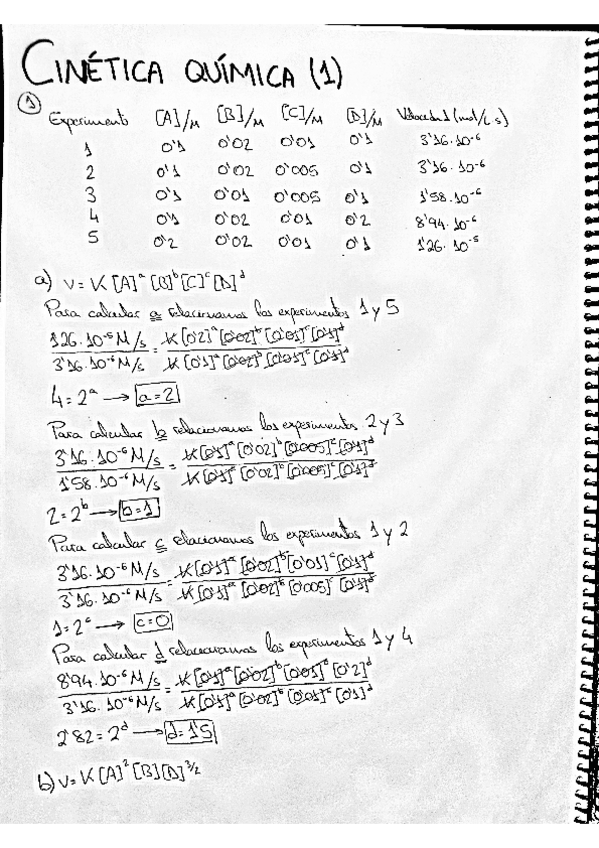 CINÉTICA QUÍMICA (1)
1
Experimento [A]/M [B]/M [C]/M [D]/M Velocidad (mol/L s)
1 0'1 0'02 0'01 0'1 3'16·10⁻⁶
2 0'1 0'02 0'005 0'1 3'16·10⁻⁶
3 0'1 0'01 0'005 0'1 1'58·10⁻⁶
4 0'1 0'02 0'01 0'2 8'94·10⁻⁶
5 0'2 0'02 0'01 0'1 1'26·10⁻⁵
a) V=K[A]ᵃ[B]ᵇ[C]ᶜ[D]ᵈ
Para calcular a relacionamos los experimentos 1 y 5
1'26·10⁻⁵ M/s / 3'16·10⁻⁶ M/s = K[0'2]ᵃ[0'02]ᵇ[0'01]ᶜ[0'1]ᵈ / K[0'1]ᵃ[0'02]ᵇ[0'01]ᶜ[0'1]ᵈ
4=2ᵃ → a=2
Para calcular b relacionamos los experimentos 2 y 3
3'16·10⁻⁶ M/s / 1'58·10⁻⁶ M/s = K[0'1]ᵃ[0'02]ᵇ[0'005]ᶜ[0'1]ᵈ / K[0'1]ᵃ[0'02]ᵇ[0'005]ᶜ[0'1]ᵈ
2=2ᵇ → b=1
Para calcular c relacionamos los experimentos 1 y 2
3'16·10⁻⁶ M/s / 3'16·10⁻⁶ M/s = K[0'1]ᵃ[0'02]ᵇ[0'01]ᶜ[0'1]ᵈ / K[0'1]ᵃ[0'02]ᵇ[0'005]ᶜ[0'1]ᵈ
1=2ᶜ → c=0
Para calcular d relacionamos los experimentos 1 y 4
8'94·10⁻⁶ M/s / 3'16·10⁻⁶ M/s = K[0'1]ᵃ[0'02]ᵇ[0'01]ᶜ[0'2]ᵈ / K[0'1]ᵃ[0'02]ᵇ[0'01]ᶜ[0'1]ᵈ
2'82=2ᵈ → d=1'5
b) V=K[A]²[B][D]³/²